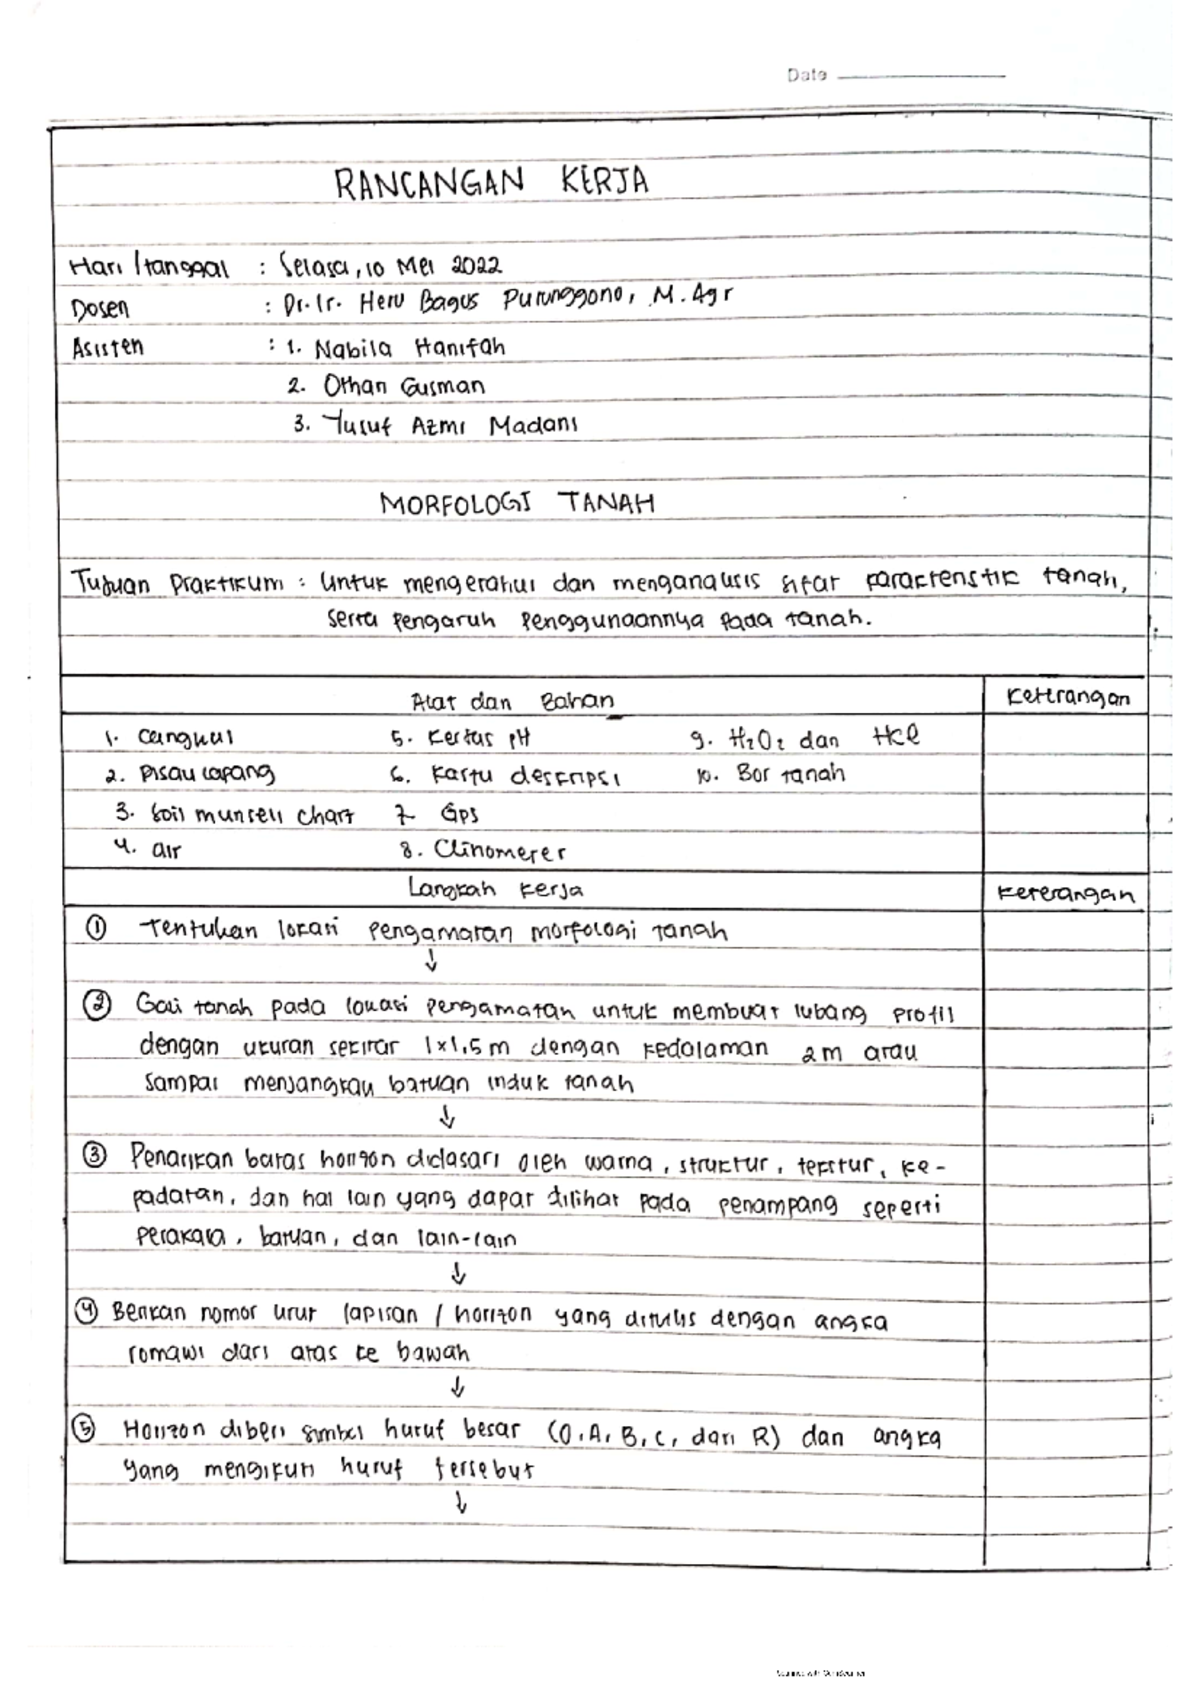 Date
RANCANGAN KERJA
Hari / tanggal : Selasa, 10 Mei 2022
Dosen : Dr. Ir. Heru Bagus Purunggono, M. Agr
Asisten : 1. Nabila Hanifah
2. Othan Gusman
3. Yusuf Azmi Madani
MORFOLOGI TANAH
Tujuan Praktikum : Untuk mengetahui dan menganalisis sifat karakteristik tanah,
serta pengaruh penggunaannya pada tanah.
Alat dan Bahan Keterangan
1. Cangkul 5. Kertas pH 9. H₂O₂ dan HCl
2. Pisau lapang 6. Kartu deskripsi 10. Bor tanah
3. Soil munsell chart 7. Gps
4. air 8. Clinometer
Langkah Kerja Keterangan
① Tentukan lokasi pengamatan morfologi tanah
↓
② Gali tanah pada lokasi pengamatan untuk membuat lubang profil
dengan ukuran sekitar 1x1,5 m dengan kedalaman 2m atau
sampai menjangkau batuan induk tanah
↓
③ Penarikan batas horizon didasari oleh warna, struktur, tekstur, ke-
padatan, dan hal lain yang dapat dilihat pada penampang seperti
perakara, batuan, dan lain-lain
↓
④ Berikan nomor urut lapisan / horizon yang ditulis dengan angka
romawi dari atas ke bawah
↓
⑤ Horizon diberi simbol huruf besar (O, A, B, C, dan R) dan angka
yang mengikuti huruf tersebut
↓
Scanned with CamScanner